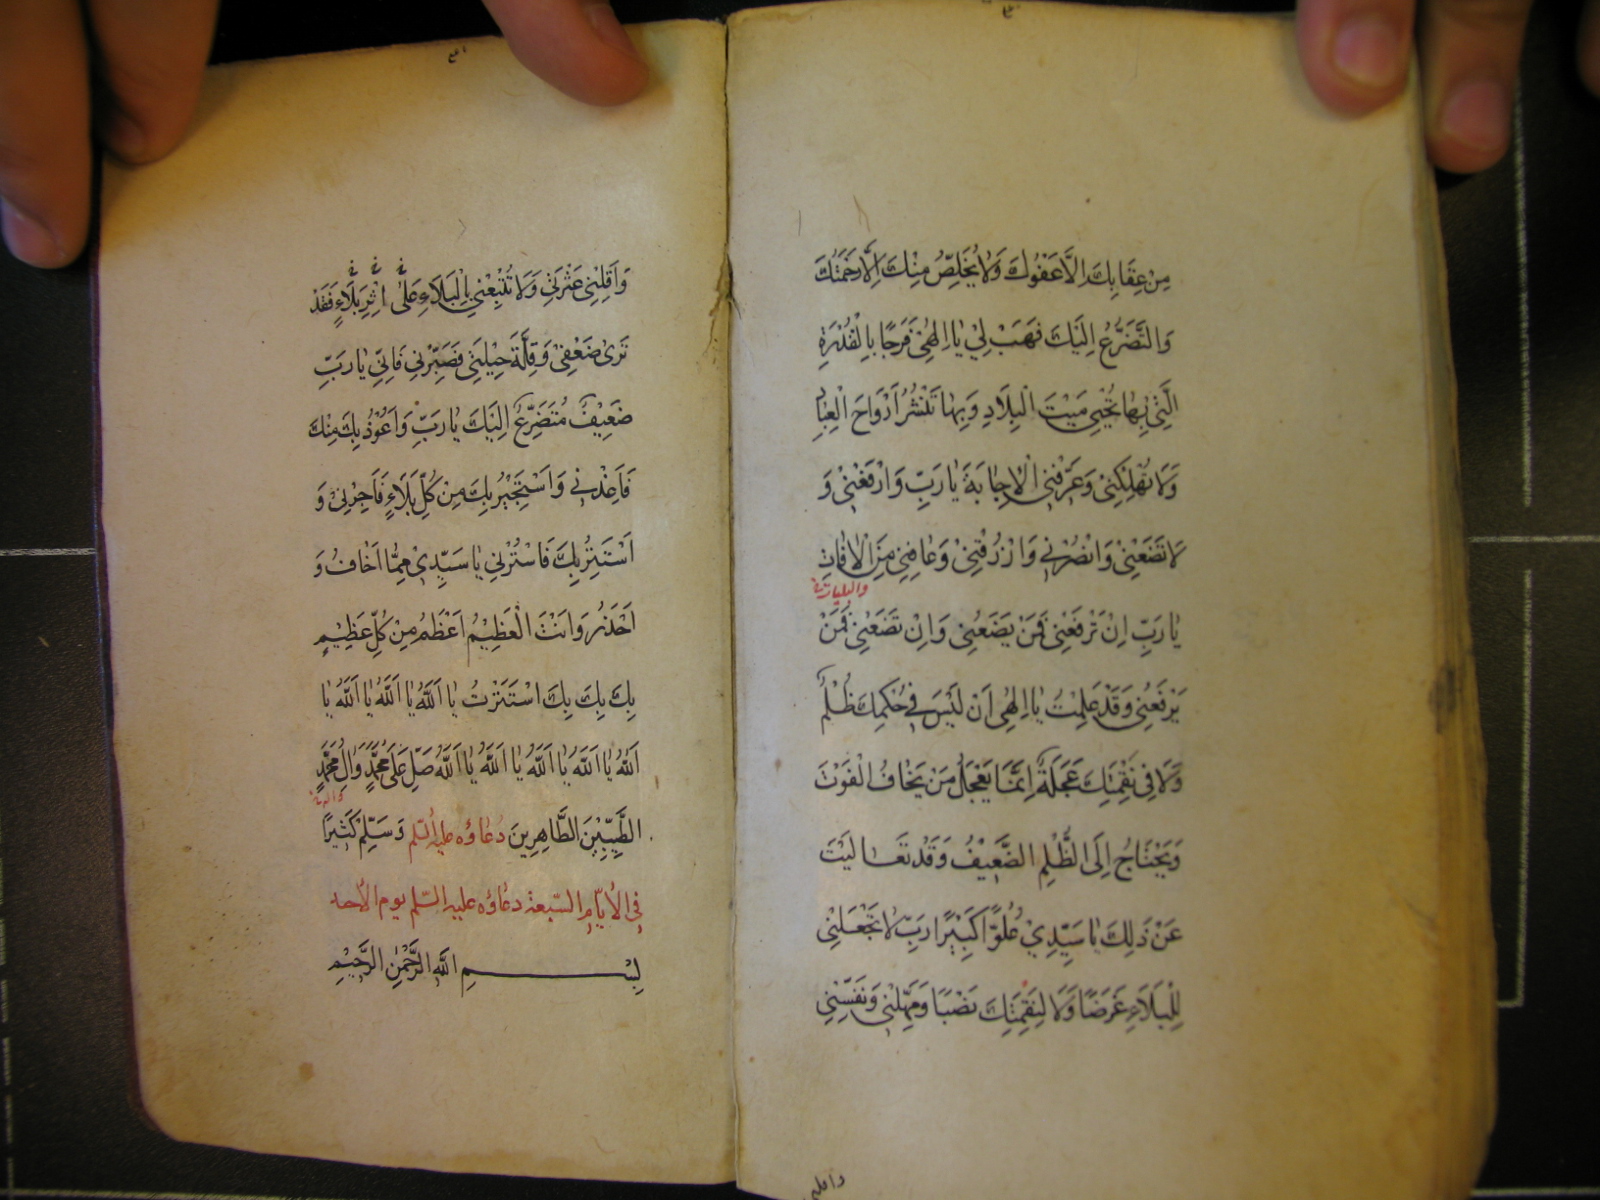 مِنْ عِقَابِكَ اِلَّا عَفْوُكَ وَلَا يُخَلِّصُ مِنْكَ اِلَّا رَحْمَتُكَ
وَالتَّضَرُّعُ اِلَيْكَ فَهَبْ لِيْ يَا اِلٰهِيْ فَرَجًا بِالْقُدْرَةِ
الَّتِيْ بِهَا تُحْيِيْ مَيْتَ الْبِلَادِ وَبِهَا تَنْشُرُ اَرْوَاحَ الْعِبَادِ
وَلَا تُهْلِكْنِيْ وَعَرِّفْنِي الْاِجَابَةَ يَا رَبِّ وَارْفَعْنِيْ وَ
لَا تَضَعْنِيْ وَانْصُرْنِيْ وَارْزُقْنِيْ وَعَافِنِيْ مِنَ الْاٰفَاتِ
يَا رَبِّ اِنْ تَرْفَعْنِيْ فَمَنْ يَضَعُنِيْ وَاِنْ تَضَعْنِيْ فَمَنْ
يَرْفَعُنِيْ وَقَدْ عَلِمْتُ يَا اِلٰهِيْ اَنْ لَيْسَ فِيْ حُكْمِكَ ظُلْمٌ
وَلَا فِيْ نَقِمَتِكَ عَجَلَةٌ اِنَّمَا يَعْجَلُ مَنْ يَخَافُ الْفَوْتَ
وَيَحْتَاجُ اِلَى الظُّلْمِ الضَّعِيْفُ وَقَدْ تَعَالَيْتَ
عَنْ ذٰلِكَ يَا سَيِّدِيْ عُلُوًّا كَبِيْرًا رَبِّ لَا تَجْعَلْنِيْ
لِلْبَلَاءِ غَرَضًا وَلَا لِنَقِمَتِكَ نَصَبًا وَمَهِّلْنِيْ وَنَفِّسْنِيْ
وَاَقِلْنِيْ عَثْرَتِيْ وَلَا تُتْبِعْنِيْ بِالْبَلَاءِ عَلٰى اَثَرِ بَلَاءٍ فَقَدْ
تَرٰى ضَعْفِيْ وَقِلَّةَ حِيْلَتِيْ فَصَبِّرْنِيْ فَاِنِّيْ يَا رَبِّ
ضَعِيْفٌ مُتَضَرِّعٌ اِلَيْكَ يَا رَبِّ وَاَعُوْذُ بِكَ مِنْكَ
فَاَعِذْنِيْ وَاَسْتَجِيْرُ بِكَ مِنْ كُلِّ بَلَاءٍ فَاَجِرْنِيْ وَ
اَسْتَتِرُ بِكَ فَاسْتُرْنِيْ يَا سَيِّدِيْ مِمَّا اَخَافُ وَ
اَحْذَرُ وَاَنْتَ الْعَظِيْمُ اَعْظَمُ مِنْ كُلِّ عَظِيْمٍ
بِكَ بِكَ بِكَ اسْتَتَرْتُ يَا اَللّٰهُ يَا اَللّٰهُ يَا اَللّٰهُ يَا
اَللّٰهُ يَا اَللّٰهُ يَا اَللّٰهُ يَا اَللّٰهُ يَا اَللّٰهُ صَلِّ عَلٰى مُحَمَّدٍ وَاٰلِ مُحَمَّدٍ
الطَّيِّبِيْنَ الطَّاهِرِيْنَ دُعَاؤُه عليه السّلم وَسَلِّمْ كَثِيْرًا
فى الأيّام السّبعة دعاؤه عليه السّلم يوم الأحد
بِسْمِ اللّٰهِ الرَّحْمٰنِ الرَّحِيْمِ